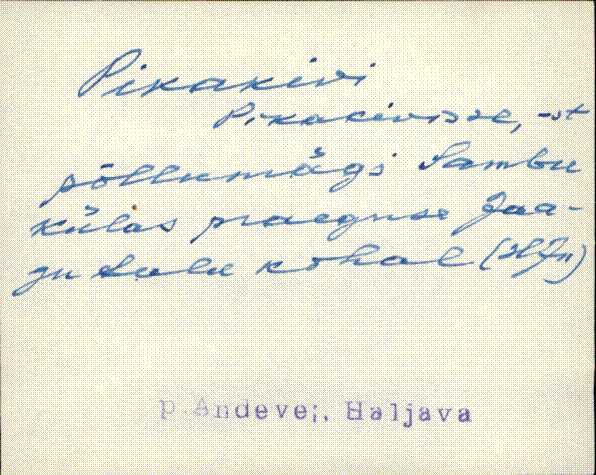 Pikakivi
Pikakivisse, -st
põllumägi Sambu
külas praeguse Jaa-
gu talu kohal (HJn)
p. Andevei, Haljava